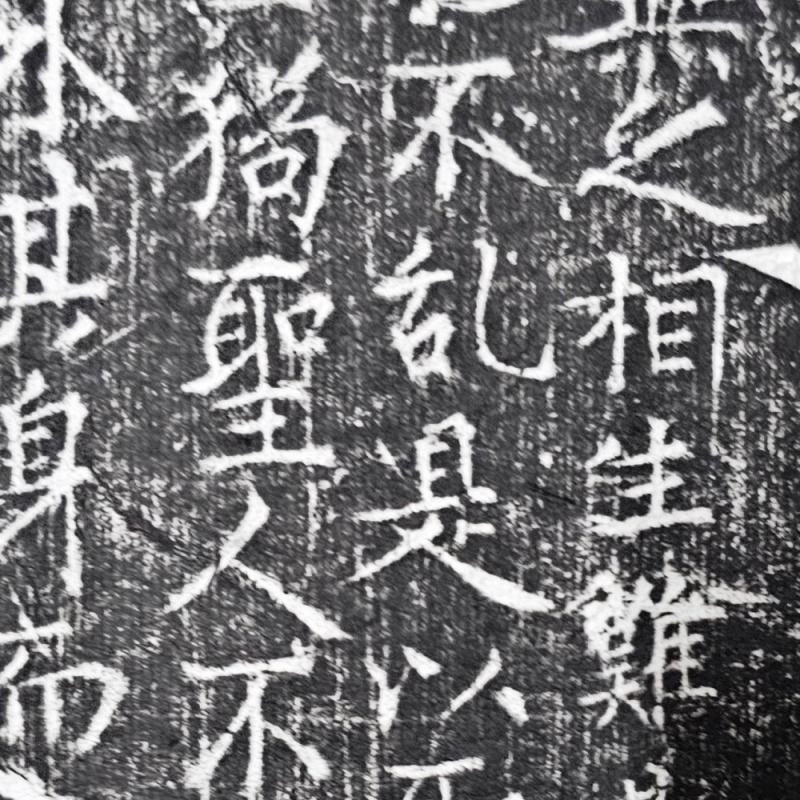 之相生難
不乱是以
狗聖人不
外其身而